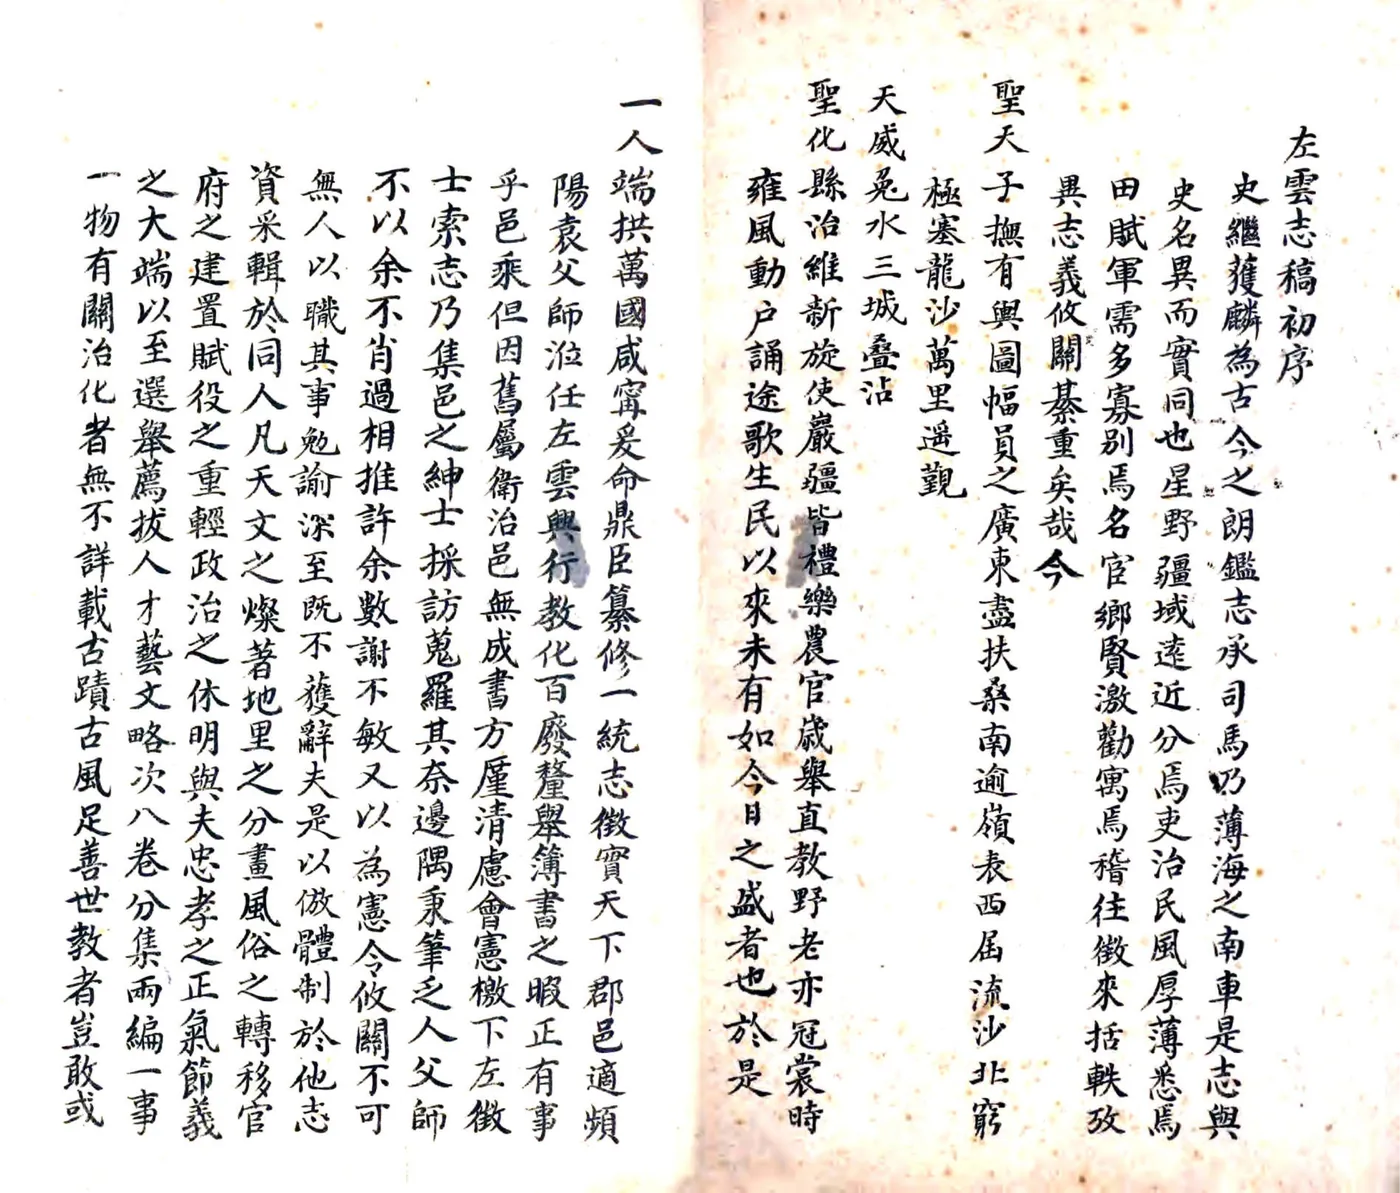 左雲志稿初序
史繼獲麟為古今之朗鑑志承司馬乃薄海之南車是志與
史名異而實同也星野疆域遠近分焉吏治民風厚薄悉焉
田賦軍需多寡别焉名宦鄉賢激勸寓焉稽往徵來括軼攷
異志義攸關綦重矣哉今
聖天子撫有輿圖幅員之廣東盡扶桑南逾嶺表西屆流沙北窮
極塞龍沙萬里遥覲
天威兔水三城叠沾
聖化縣治維新旋使巖疆皆禮樂農官歲舉直教野老亦冠裳時
雍風動户誦途歌生民以來未有如今日之盛者也於是
一人端拱萬國咸寧爰命鼎臣纂修一統志徵實天下郡邑適頻
陽袁父師涖任左雲興行教化百廢釐舉簿書之暇正有事
乎邑乘但因舊屬衛治邑無成書方厪清慮會憲檄下左徵
士索志乃集邑之紳士採訪蒐羅其奈邊隅秉筆乏人父師
不以余不肖過相推許余數謝不敏又以為憲令攸關不可
無人以職其事勉諭深至既不獲辭夫是以倣體制於他志
資采輯於同人凡天文之燦著地里之分畫風俗之轉移官
府之建置賦役之重輕政治之休明與夫忠孝之正氣節義
之大端以至選舉薦拔人才藝文略次八卷分集兩編一事
一物有關治化者無不詳載古蹟古風足善世教者豈敢或